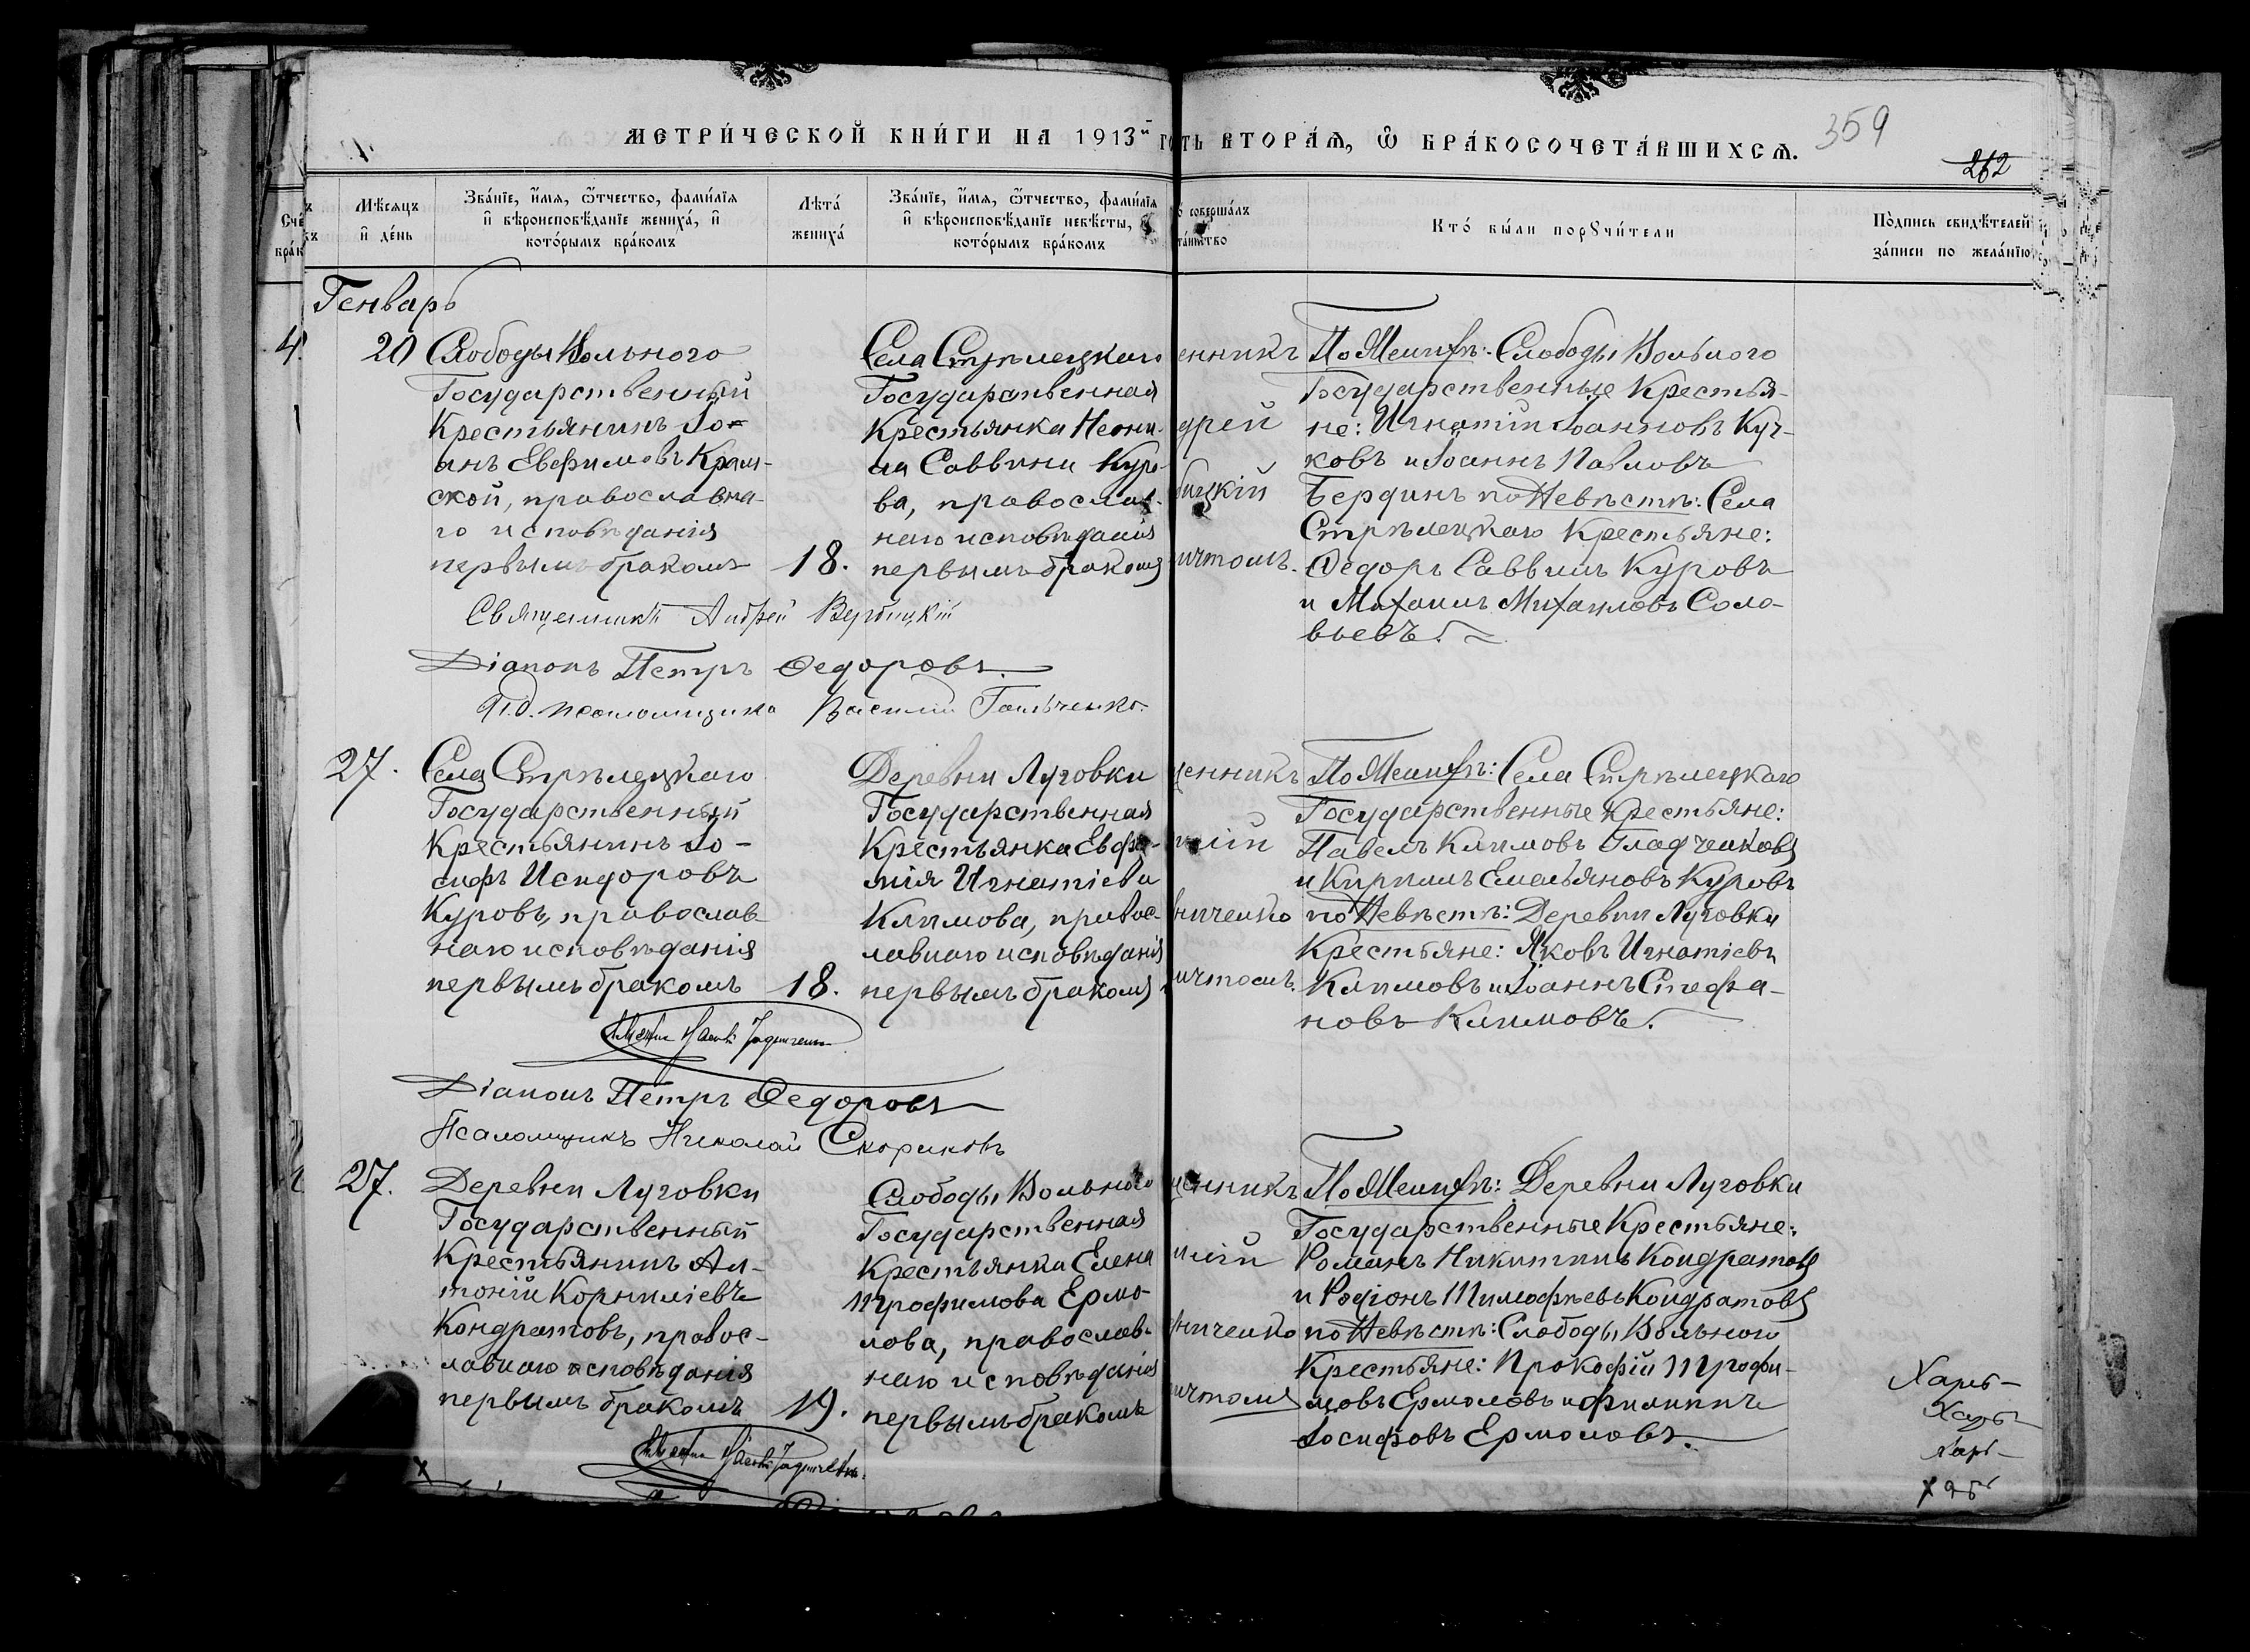 359
262
МЕТРИ́ЧЕСКОЙ КНИ́ГИ НА 1913й ГО
ТЬ ВТОРА́Я, Ѡ БРА́КОСОЧЕТА́ВШИХСѦ.
Счё
бра́к
Мѣ́сяцъ
и҆ де́нь
Зва́нїе, и҆́мѧ, ѻ҆́тчество, фами́лїѧ
и҆ вѣроисповѣ́данїе жениха́, и҆
кото́рымъ бра́комъ
Лѣта́
жениха́
Зва́нїе, и҆́мѧ, ѻ҆́тчество, фами́лїѧ
и҆ вѣроисповѣ́данїе невѣ́сты,
кото́рымъ бра́комъ
о́ соверша́лъ
та́инство
Кто́ бы́ли порꙋчи́тели
По́дпись свидѣ́телей
за́писи по жела́нїю
Генварь
4.
20
Слободы Вольного
Государственный
Крестьянинъ Іо-
анъ Евфимовъ Крам-
ской, православна-
го исповѣданія
первымъ бракомъ
18.
Села Стрѣлецкаго
Государственная
Крестьянка Неони-
ла Саввина Куро-
ва, православ-
наго исповѣданія
первымъ бракомъ
енникъ
дрей
бицкій
ичтомъ.
По Женихѣ: Слободы Вольного
Государственные Крестья-
не: Игнатій Іоанновъ Куч-
ковъ и Іоаннъ Павловъ
Бердинъ по Невѣстѣ: Села
Стрѣлецкаго Крестьяне:
Ѳедоръ Саввинъ Куровъ
и Михаилъ Михаиловъ Соло-
вьевъ.
Священникъ Андрей Вербицкій
Діаконъ Петръ Ѳедоровъ.
И.д. псаломщика Василий Гальченко.
27.
Села Стрѣлецкаго
Государственный
Крестьянинъ Іо-
сифъ Исидоровъ
Куровъ, православ-
наго исповѣданія
первымъ бракомъ
18.
Деревни Луговки
Государственная
Крестьянка Евфи-
мія Игнатіева
Климова, правос-
лавнаго исповѣданія
первымъ бракомъ
щенникъ
ній
ниченко
ичтомъ.
По Женихѣ: Села Стрѣлецкаго
Государственные Крестьяне:
Павелъ Климовъ Гладченковъ
и Кириллъ Емельяновъ Куровъ
по Невѣстѣ: Деревни Луговки
Крестьяне: Яковъ Игнатіевъ
Климовъ и Іоаннъ Стефа-
новъ Климовъ.
Діаконъ Петръ Ѳедоровъ
Псаломщикъ Николай Скориковъ
27.
Деревни Луговки
Государственный
Крестьянинъ Ан-
тоній Корниліевъ
Кондратовъ, правос-
лавнаго исповѣданія
первымъ бракомъ
19.
Слободы Вольного
Государственная
Крестьянка Елена
Трофимова Ермо-
лова, православ-
наго исповѣданія
первымъ бракомъ
щенникъ
ній
ниченко
ичтомъ
По Женихѣ: Деревни Луговки
Государственные Крестьяне:
Романъ Никитинъ Кондратовъ
и Родіонъ Тимофѣевъ Кондратовъ
по Невѣстѣ: Слободы Вольного
Крестьяне: Прокофій Трофи-
мовъ Ермоловъ и Филиппъ
Іосифовъ Ермоловъ.